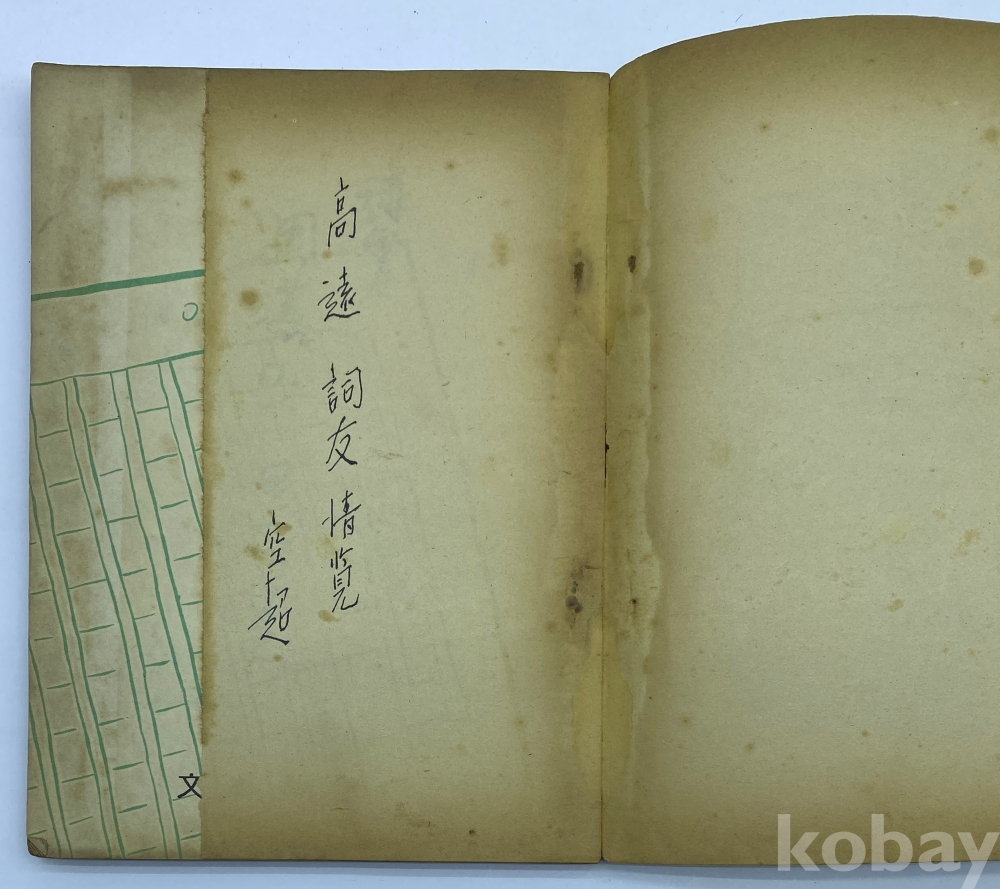 高遠 詞友 情覽
空超
文
kobay